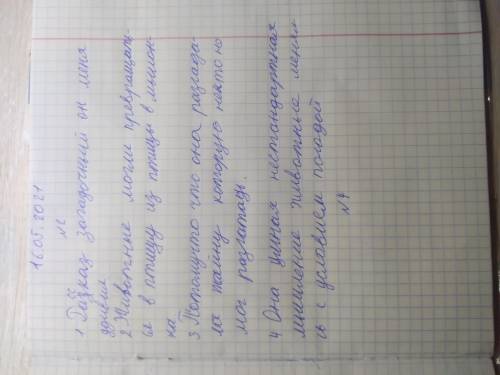 16.05.2021
№2
1 Разказ загадочный он меня
удивил
2 Животные могли превращать-
ся в птицу из птицы в мышон-
ка
3 Потомучто она разгада-
ла тайну которую некто не
мог разгатадь.
4 Она умная нестандартная
мышление животные менял
сь с условием погодой
№4